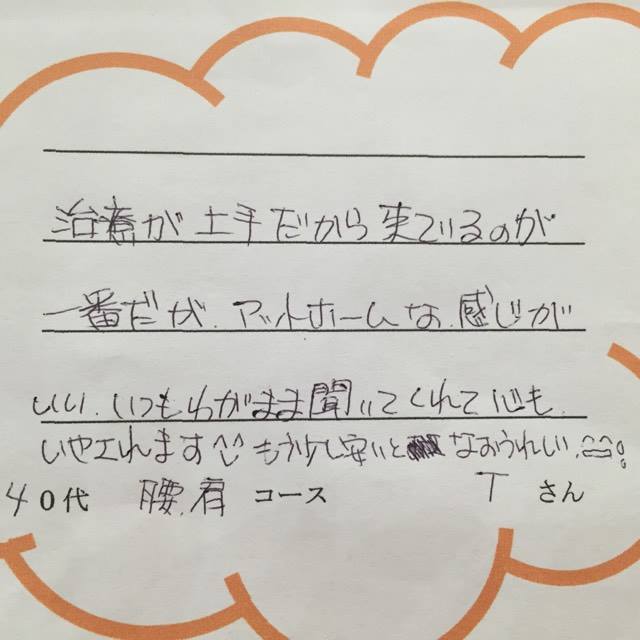 治療が上手だから来ているのが
一番だが、アットホームな、感じが
いい、いつもわがまま聞いてくれて心も、
いやされます^^もう少し安いと なおうれしい、
40代 腰、肩 コース T さん